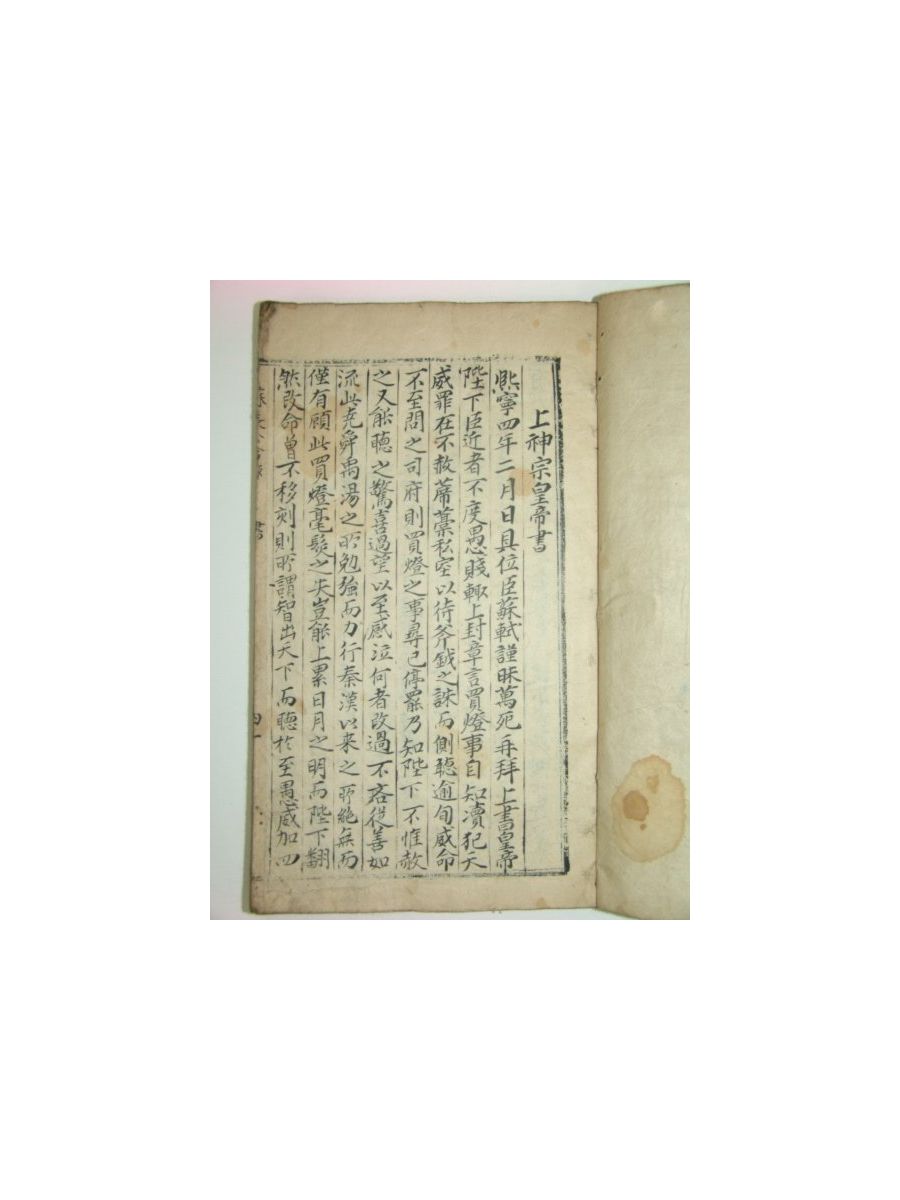 上神宗皇帝書
熙寧四年二月日具位臣蘇軾謹昧萬死再拜上書皇帝
陛下臣近者不度愚賤輙上封章言買燈事自知瀆犯天
威罪在不赦蓆藁私室以待斧鉞之誅而側聽逾旬威命
不至問之司府則買燈之事尋已停罷乃知陛下不惟赦
之又能聽之驚喜過望以至感泣何者改過不吝從善如
流此堯舜禹湯之所勉強而力行秦漢以来之所絶無而
僅有顧此買燈毫髮之失豈能上累日月之明而陛下翻
然改命曾不移刻則所謂智出天下而聽於至愚威加四